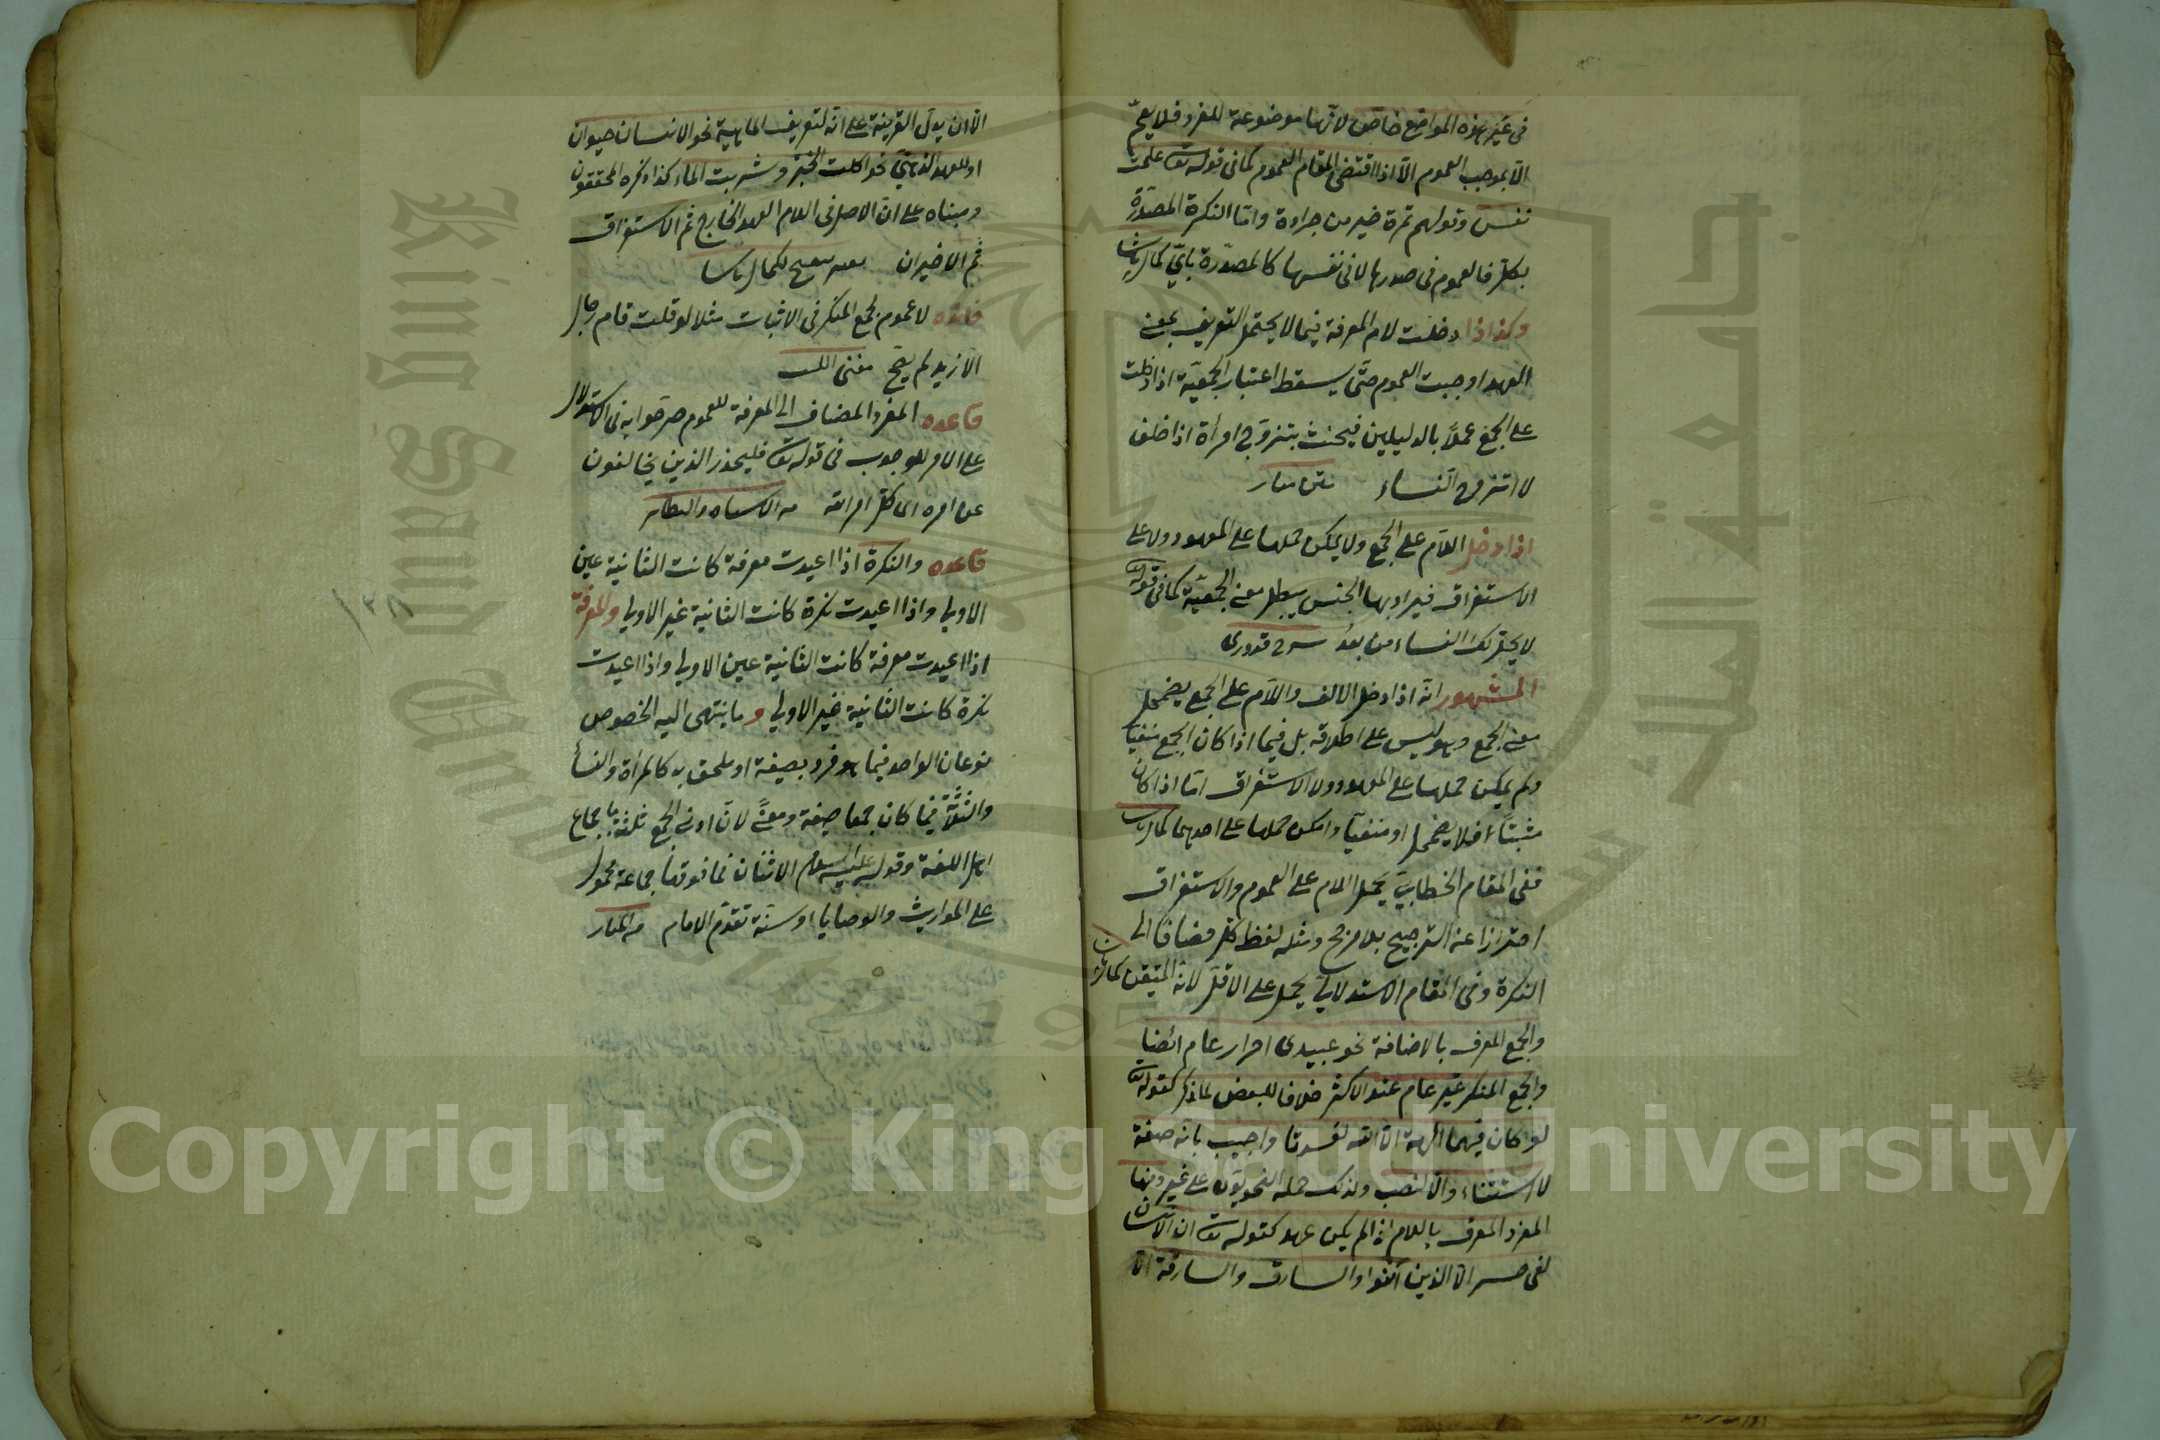 في غير هذه المواضع خاص لانها موضوعة للفرد فلا يعم
الا بموجب العموم الا اذا اقتضى المقام العموم كما في قوله تعا علمت
نفس وقولهم تمرة خير من جرادة واما النكرة المصدرة
بكل فالعموم في صدرها لا في نفسها كالمصدرة باي كمال پاشا
وكذا اذا دخلت لام المعرفة فيما لا يحتمل التعريف بمعنى
العهد اوجبت العموم حتى يسقط اعتبار الجمعية اذا دخلت
على الجمع عملا بالدليلين فيحنث بتزوج امرأة اذا حلف
لا اتزوج النساء متن منار
اذا دخل اللام على الجمع ولا يمكن حملها على المعهود ولا على
الاستغراق فيراد بها الجنس يبطل معنى الجمعية كما في قوله تعا
لا يحل لك النساء من بعد شرح قدوري
المشهور انه اذا دخل الالف واللام على الجمع يضمحل
معنى الجمع وهو ليس على اطلاقه بل فيما اذا كان الجمع منفيا
ولم يمكن حملها على المعهود ولا الاستغراق اما اذا كان
مثبتا فلا يضمحل او منفيا وامكن حملها على احدهما كمال پاشا
ففي المقام الخطابي يحمل اللام على العموم والاستغراق
احترازا عن الترجيح بلا مرجح ومثله لفظ كل مضافا الى
النكرة وفي المقام الاستدلالي يحمل على الاقل لانه المتيقن كمال پاشا
والجمع المعرف بالاضافة نحو عبيدي احرار عام ايضا
والجمع المنكر غير عام عند الاكثر خلافا للبعض لما ذكر كقوله تعا
لو كان فيهما الهة الا الله لفسدتا واجيب بانه صفة
لا استثناء والا لنصب ولذلك حمله النحويون على غير ومنها
المفرد المعرف باللام اذا لم يكن عهد كقوله تعا ان الانسان
لفي خسر الا الذين آمنوا والسارق والسارقة الا
الا ان يدل القرينة على انه لتعريف الماهية نحو الانسان حيوان
او للعهد الذهني نحو اكلت الخبز وشربت الماء كذا ذكره المحققون
ومبناه على ان الاصل في اللام العهد الخارج ثم الاستغراق
ثم الاخيران تنقيح لكمال پاشا
فائده لا عموم لجمع المنكر في الاثبات مثلا لو قلت قام رجال
الا زيد لم يصح مغني اللبيب
قاعده المفرد المضاف الى المعرفة للعموم صرحوا به في الاستدلال
على الامر للوجوب في قوله تعا فليحذر الذين يخالفون
عن امره اي كل امر الله من الاشباه والنظائر
قاعده والنكرة اذا اعيدت معرفة كانت الثانية عين
الاولى واذا اعيدت نكرة كانت الثانية غير الاولى والمعرفة
اذا اعيدت معرفة كانت الثانية عين الاولى واذا اعيدت
نكرة كانت الثانية غير الاولى وما ينتهى اليه الخصوص
نوعان الواحد فيما هو فرد بصيغة او ملحق به كالمرأة والنساء
والثلاثة فيما كان جمعا صيغة ومعنى لان ادنى الجمع ثلثة باجماع
اهل اللغة وقوله عليه السلام الاثنان فما فوقها جماعة محمول
على المواريث والوصايا او سنة تقدم الامام من المنار
Copyright © King Saud University
جامعة الملك سعود
King Saud University
1957